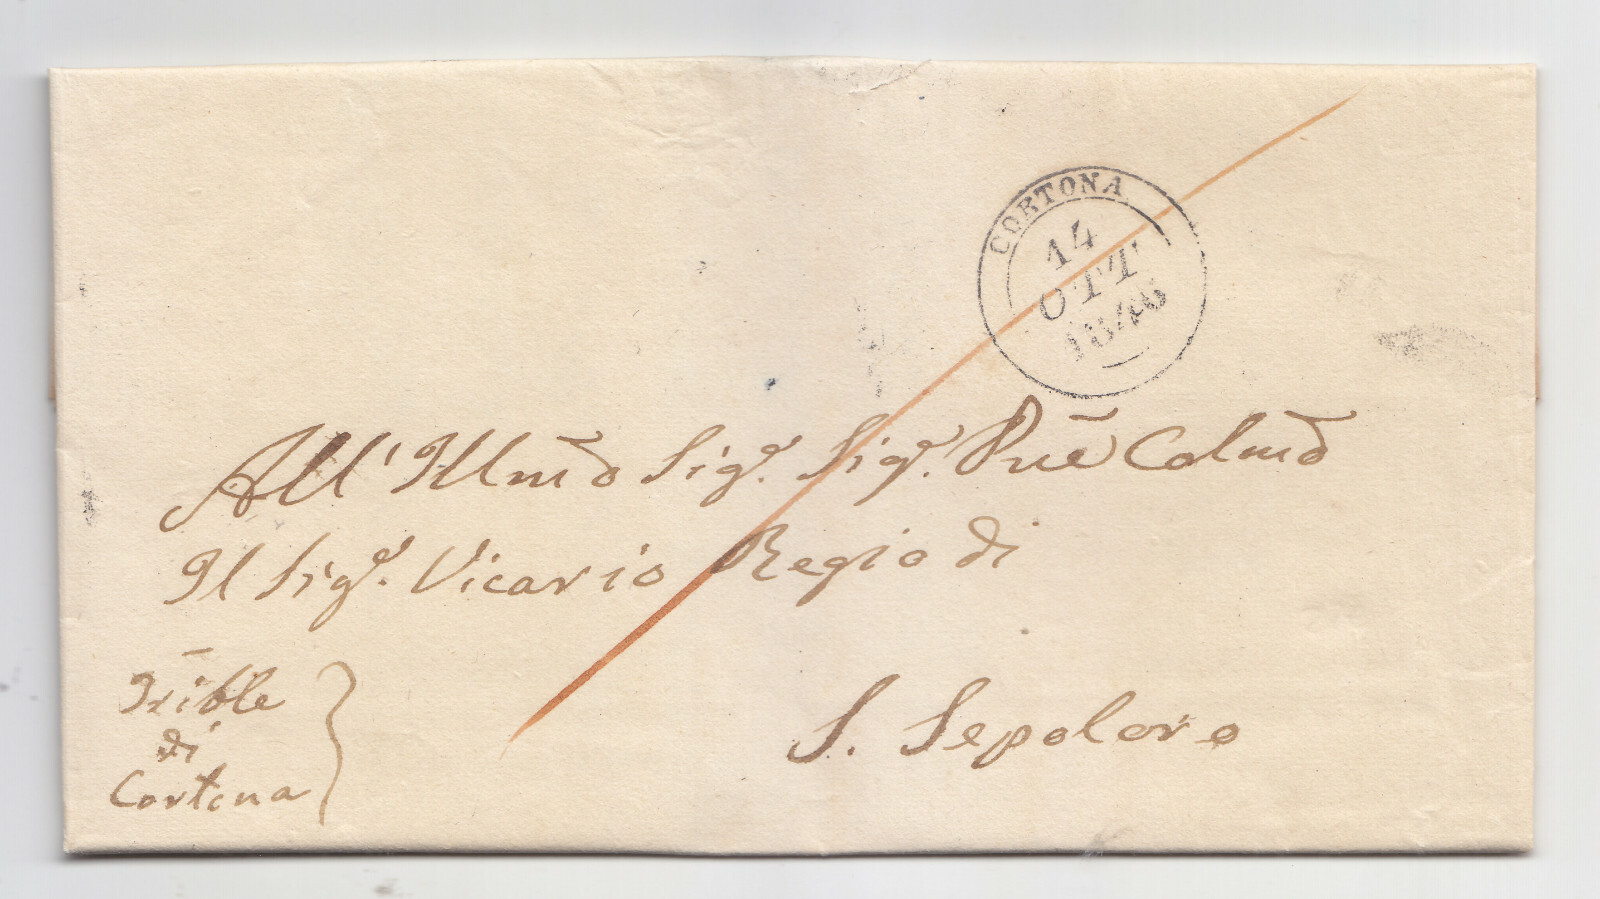 CORTONA
14
OTT
1846
All' Illmo Sigr. Sigr. Prñe Colmo
Il Sigr. Vicario Regio di
S. Sepolcro
Trible
di
Cortona